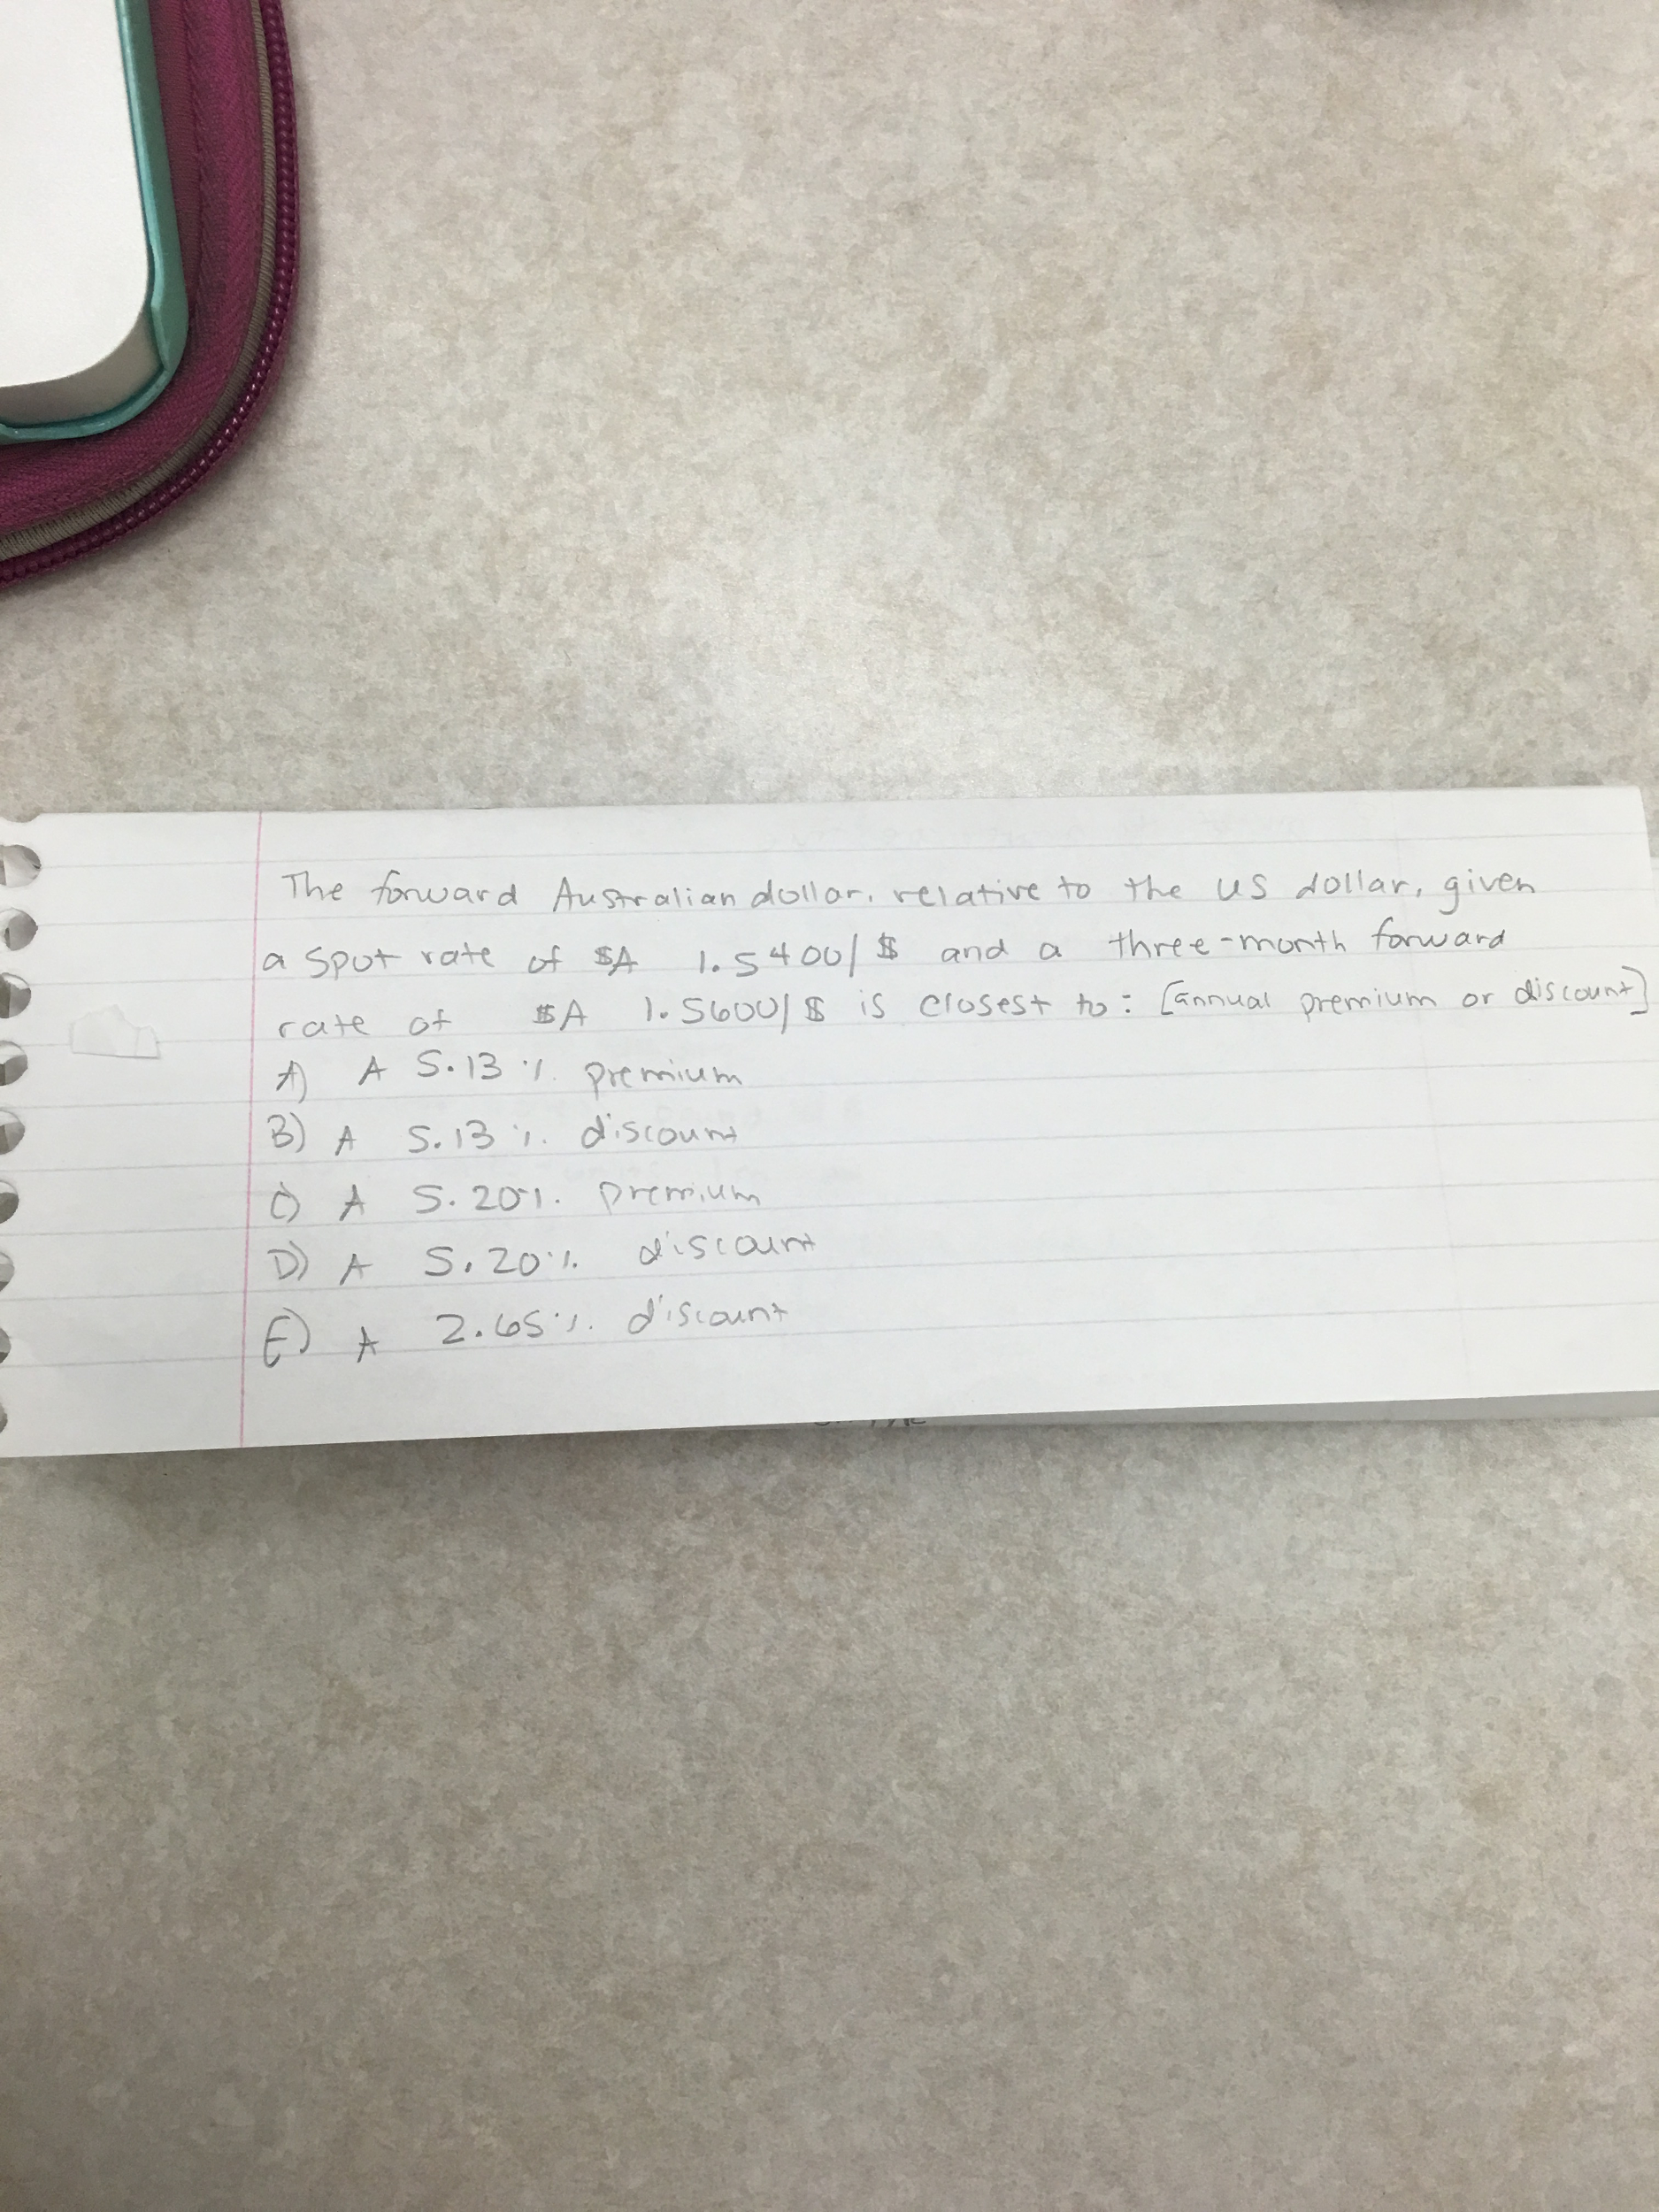 The forward Australian dollar, relative to the US dollar, given
a spot rate of $A 1.5400/$ and a three-month forward
rate of $A 1.5600/$ is closest to: [annual premium or discount]
A) A 5.13% premium
B) A 5.13% discount
C) A 5.20% premium
D) A 5.20% discount
E) A 2.65% discount